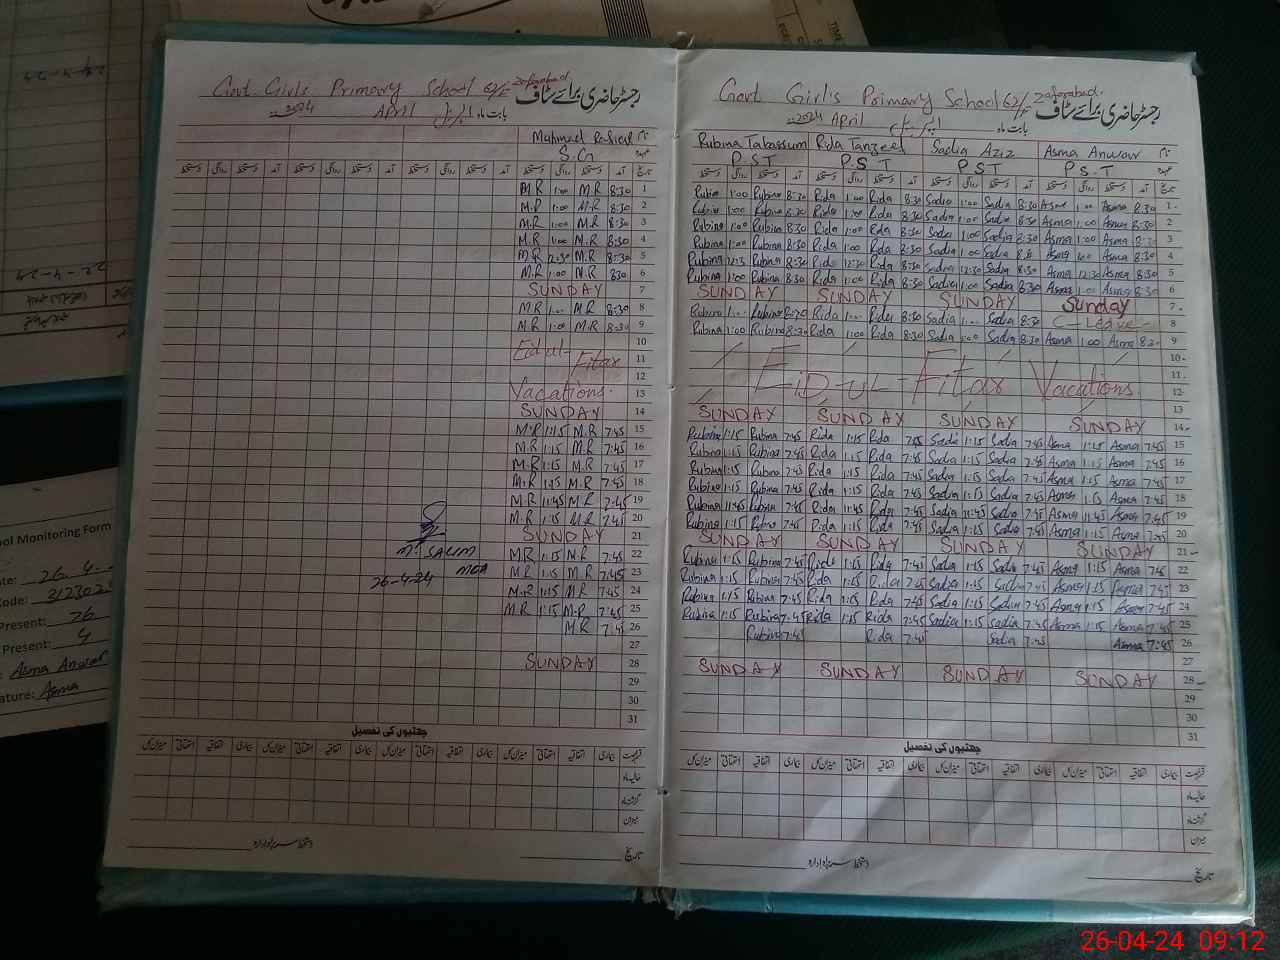 Govt. Girls Primary School 62/E Zafarabad.
رجسٹر حاضری برائے سٹاف
بابت ماہ اپریل APRIL 2024
Mahmad Rashid نام
S.G عہدہ
تاریخ آمد دستخط روانگی دستخط
M.R 1:00 M.R 8:30 1
M.R 1:00 M.R 8:30 2
M.R 1:00 M.R 8:30 3
M.R 1:00 M.R 8:30 4
M.R 12:30 M.R 8:30 5
M.R 1:00 M.R 8:30 6
SUNDAY 7
M.R 1:00 M.R 8:30 8
M.R 1:00 M.R 8:30 9
10
Eid ul-Fitar 11
12
Vacations. 13
SUNDAY 14
M.R 1:15 M.R 7:45 15
M.R 1:15 M.R 7:45 16
M.R 1:15 M.R 7:45 17
M.R 1:15 M.R 7:45 18
M.R 11:45 M.R 7:45 19
M.R 1:15 M.R 7:45 20
SUNDAY 21
M. SALIM M.R 1:15 M.R 7:45 22
26-4-24 MEA M.R 1:15 M.R 7:45 23
M.R 1:15 M.R 7:45 24
M.R 1:15 M.R 7:45 25
M.R 7:45 26
27
SUNDAY 28
29
30
31
چھٹیوں کی تفصیل
Govt Girls Primary School 62/E Zafarabad.
رجسٹر حاضری برائے سٹاف
بابت ماہ اپریل APRIL 2024
Rubina Tabassum Rida Tanzeel Sadia Aziz Asma Anwar نام
P.S.T P.S.T P.S.T P.S.T
Rubina 1:00 Rubina 8:30 Rida 1:00 Rida 8:30 Sadia 1:00 Sadia 8:30 Asma 1:00 Asma 8:30 1
Rubina 1:00 Rubina 8:30 Rida 1:00 Rida 8:30 Sadia 1:00 Sadia 8:30 Asma 1:00 Asma 8:30 2
Rubina 1:00 Rubina 8:30 Rida 1:00 Rida 8:30 Sadia 1:00 Sadia 8:30 Asma 1:00 Asma 8:30 3
Rubina 1:00 Rubina 8:30 Rida 1:00 Rida 8:30 Sadia 1:00 Sadia 8:30 Asma 1:00 Asma 8:30 4
Rubina 12:30 Rubina 8:30 Rida 12:30 Rida 8:30 Sadia 12:30 Sadia 8:30 Asma 12:30 Asma 8:30 5
Rubina 1:00 Rubina 8:30 Rida 1:00 Rida 8:30 Sadia 1:00 Sadia 8:30 Asma 1:00 Asma 8:30 6
SUNDAY SUNDAY SUNDAY Sunday 7
Rubina 1:00 Rubina 8:30 Rida 1:00 Rida 8:30 Sadia 1:00 Sadia 8:30 C-Leave 8
Rubina 1:00 Rubina 8:30 Rida 1:00 Rida 8:30 Sadia 1:00 Sadia 8:30 Asma 1:00 Asma 8:30 9
10
11
EID-UL-Fitar Vacations. 12
13
SUNDAY SUNDAY SUNDAY SUNDAY 14
Rubina 1:15 Rubina 7:45 Rida 1:15 Rida 7:45 Sadia 1:15 Sadia 7:45 Asma 1:15 Asma 7:45 15
Rubina 1:15 Rubina 7:45 Rida 1:15 Rida 7:45 Sadia 1:15 Sadia 7:45 Asma 1:15 Asma 7:45 16
Rubina 1:15 Rubina 7:45 Rida 1:15 Rida 7:45 Sadia 1:15 Sadia 7:45 Asma 1:15 Asma 7:45 17
Rubina 1:15 Rubina 7:45 Rida 1:15 Rida 7:45 Sadia 1:15 Sadia 7:45 Asma 1:15 Asma 7:45 18
Rubina 11:45 Rubina 7:45 Rida 11:45 Rida 7:45 Sadia 11:45 Sadia 7:45 Asma 11:45 Asma 7:45 19
Rubina 1:15 Rubina 7:45 Rida 1:15 Rida 7:45 Sadia 1:15 Sadia 7:45 Asma 1:15 Asma 7:45 20
SUNDAY SUNDAY SUNDAY SUNDAY 21
Rubina 1:15 Rubina 7:45 Rida 1:15 Rida 7:45 Sadia 1:15 Sadia 7:45 Asma 1:15 Asma 7:45 22
Rubina 1:15 Rubina 7:45 Rida 1:15 Rida 7:45 Sadia 1:15 Sadia 7:45 Asma 1:15 Asma 7:45 23
Rubina 1:15 Rubina 7:45 Rida 1:15 Rida 7:45 Sadia 1:15 Sadia 7:45 Asma 1:15 Asma 7:45 24
Rubina 1:15 Rubina 7:45 Rida 1:15 Rida 7:45 Sadia 1:15 Sadia 7:45 Asma 1:15 Asma 7:45 25
Rubina 7:45 Rida 7:45 Sadia 7:45 Asma 7:45 26
27
SUNDAY SUNDAY SUNDAY SUNDAY 28
29
30
31
چھٹیوں کی تفصیل
ool Monitoring Form
ate: 26.4.
Code: 312302
Present: 76
Present: 4
: Asma Anwar
ature: Asma
22-4-24
26-04-24 09:12